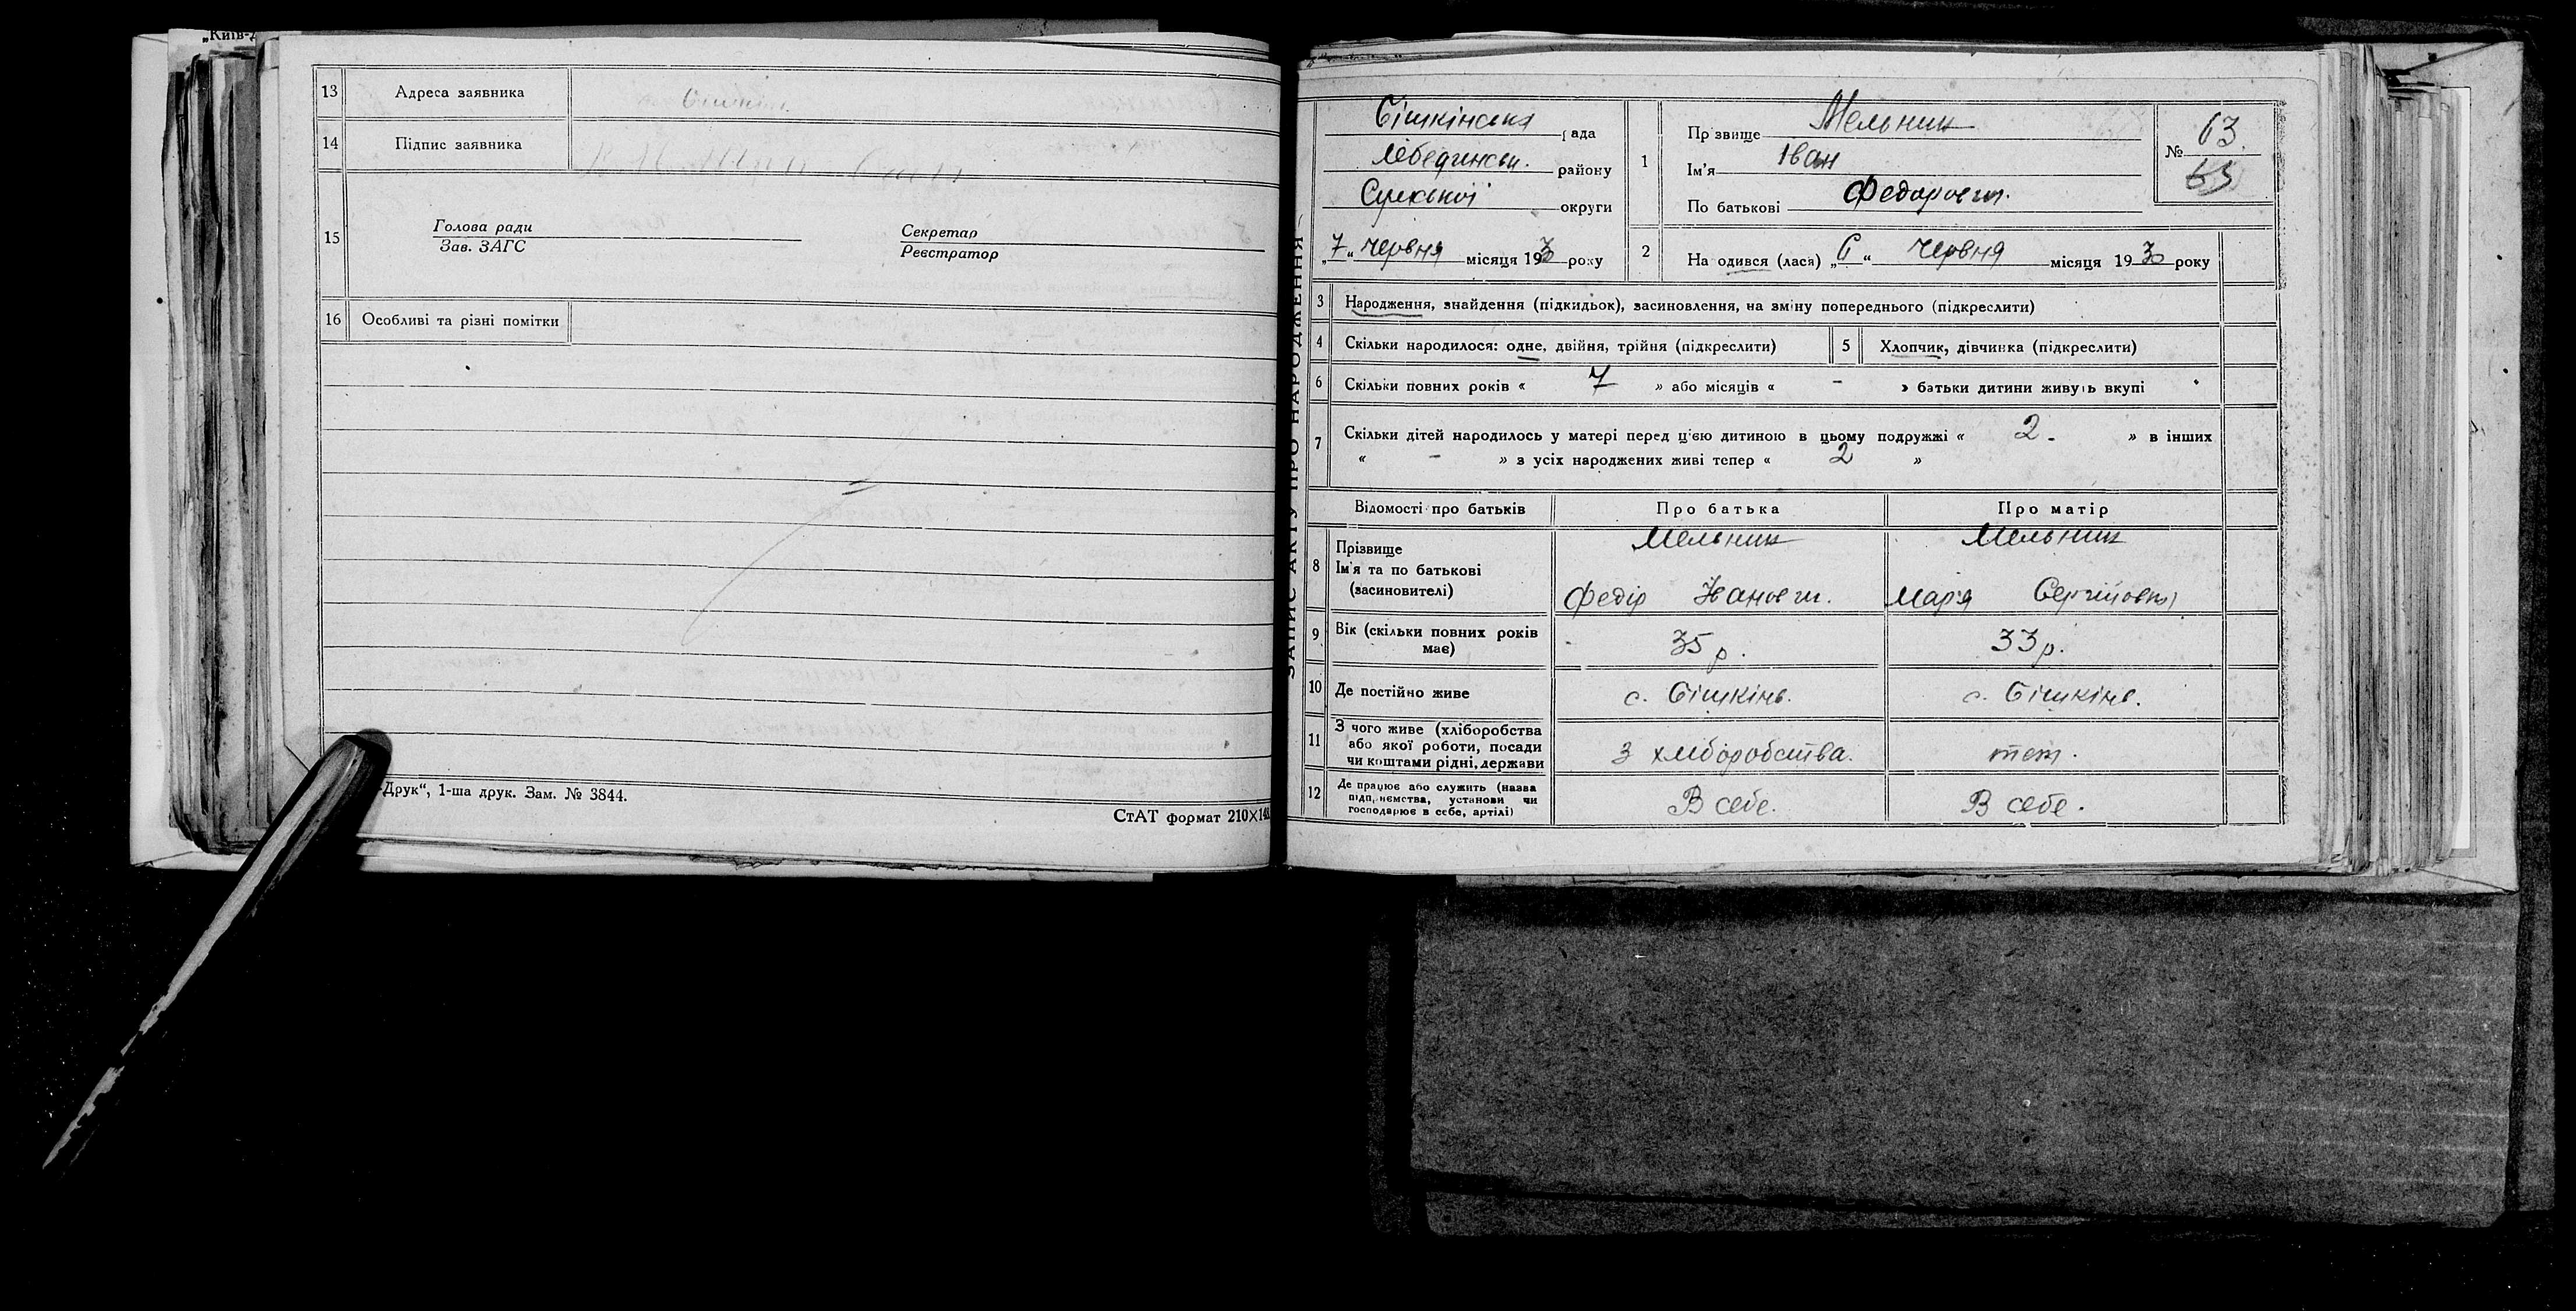 „Київ-
13 Адреса заявника
14 Підпис заявника
15 Голова ради Секретар
Зав. ЗАГС Реєстратор
16 Особливі та різні помітки
-Друк“, 1-ша друк. Зам. № 3844.
СтАТ формат 210×148
ЗАПИС АКТУ ПРО НАРОДЖЕННЯ
Сішкінська рада
Лебединськ. району
Сумської округи
„7“ червня місяця 1930 року
1 Прізвище Мельник
Ім'я Іван
По батькові Федорович.
№ 63.
63
2 Народився (лася) „6“ червня місяця 1930 року
3 Народження, знайдення (підкидьок), засиновлення, на зміну попереднього (підкреслити)
4 Скільки народилося: одне, двійня, трійня (підкреслити) 5 Хлопчик, дівчинка (підкреслити)
6 Скільки повних років « 7 » або місяців « - » батьки дитини живуть вкупі
7 Скільки дітей народилось у матері перед цією дитиною в цьому подружжі « 2 - » в інших
« - » з усіх народжених живі тепер « 2 »
Відомості про батьків Про батька Про матір
8 Прізвище Мельник Мельник
Ім'я та по батькові
(засновителі) Федір Іванович. Марія Сергіївна
9 Вік (скільки повних років має) 35 р. 33 р.
10 Де постійно живе с. Сішкінь. с. Сішкінь.
11 З чого живе (хліборобства
або якої роботи, посади
чи коштами рідні, держави З хліборобства. теж.
12 Де працює або служить (назва
підприємства, установи чи
господарює в себе, артілі) В себе. В себе.